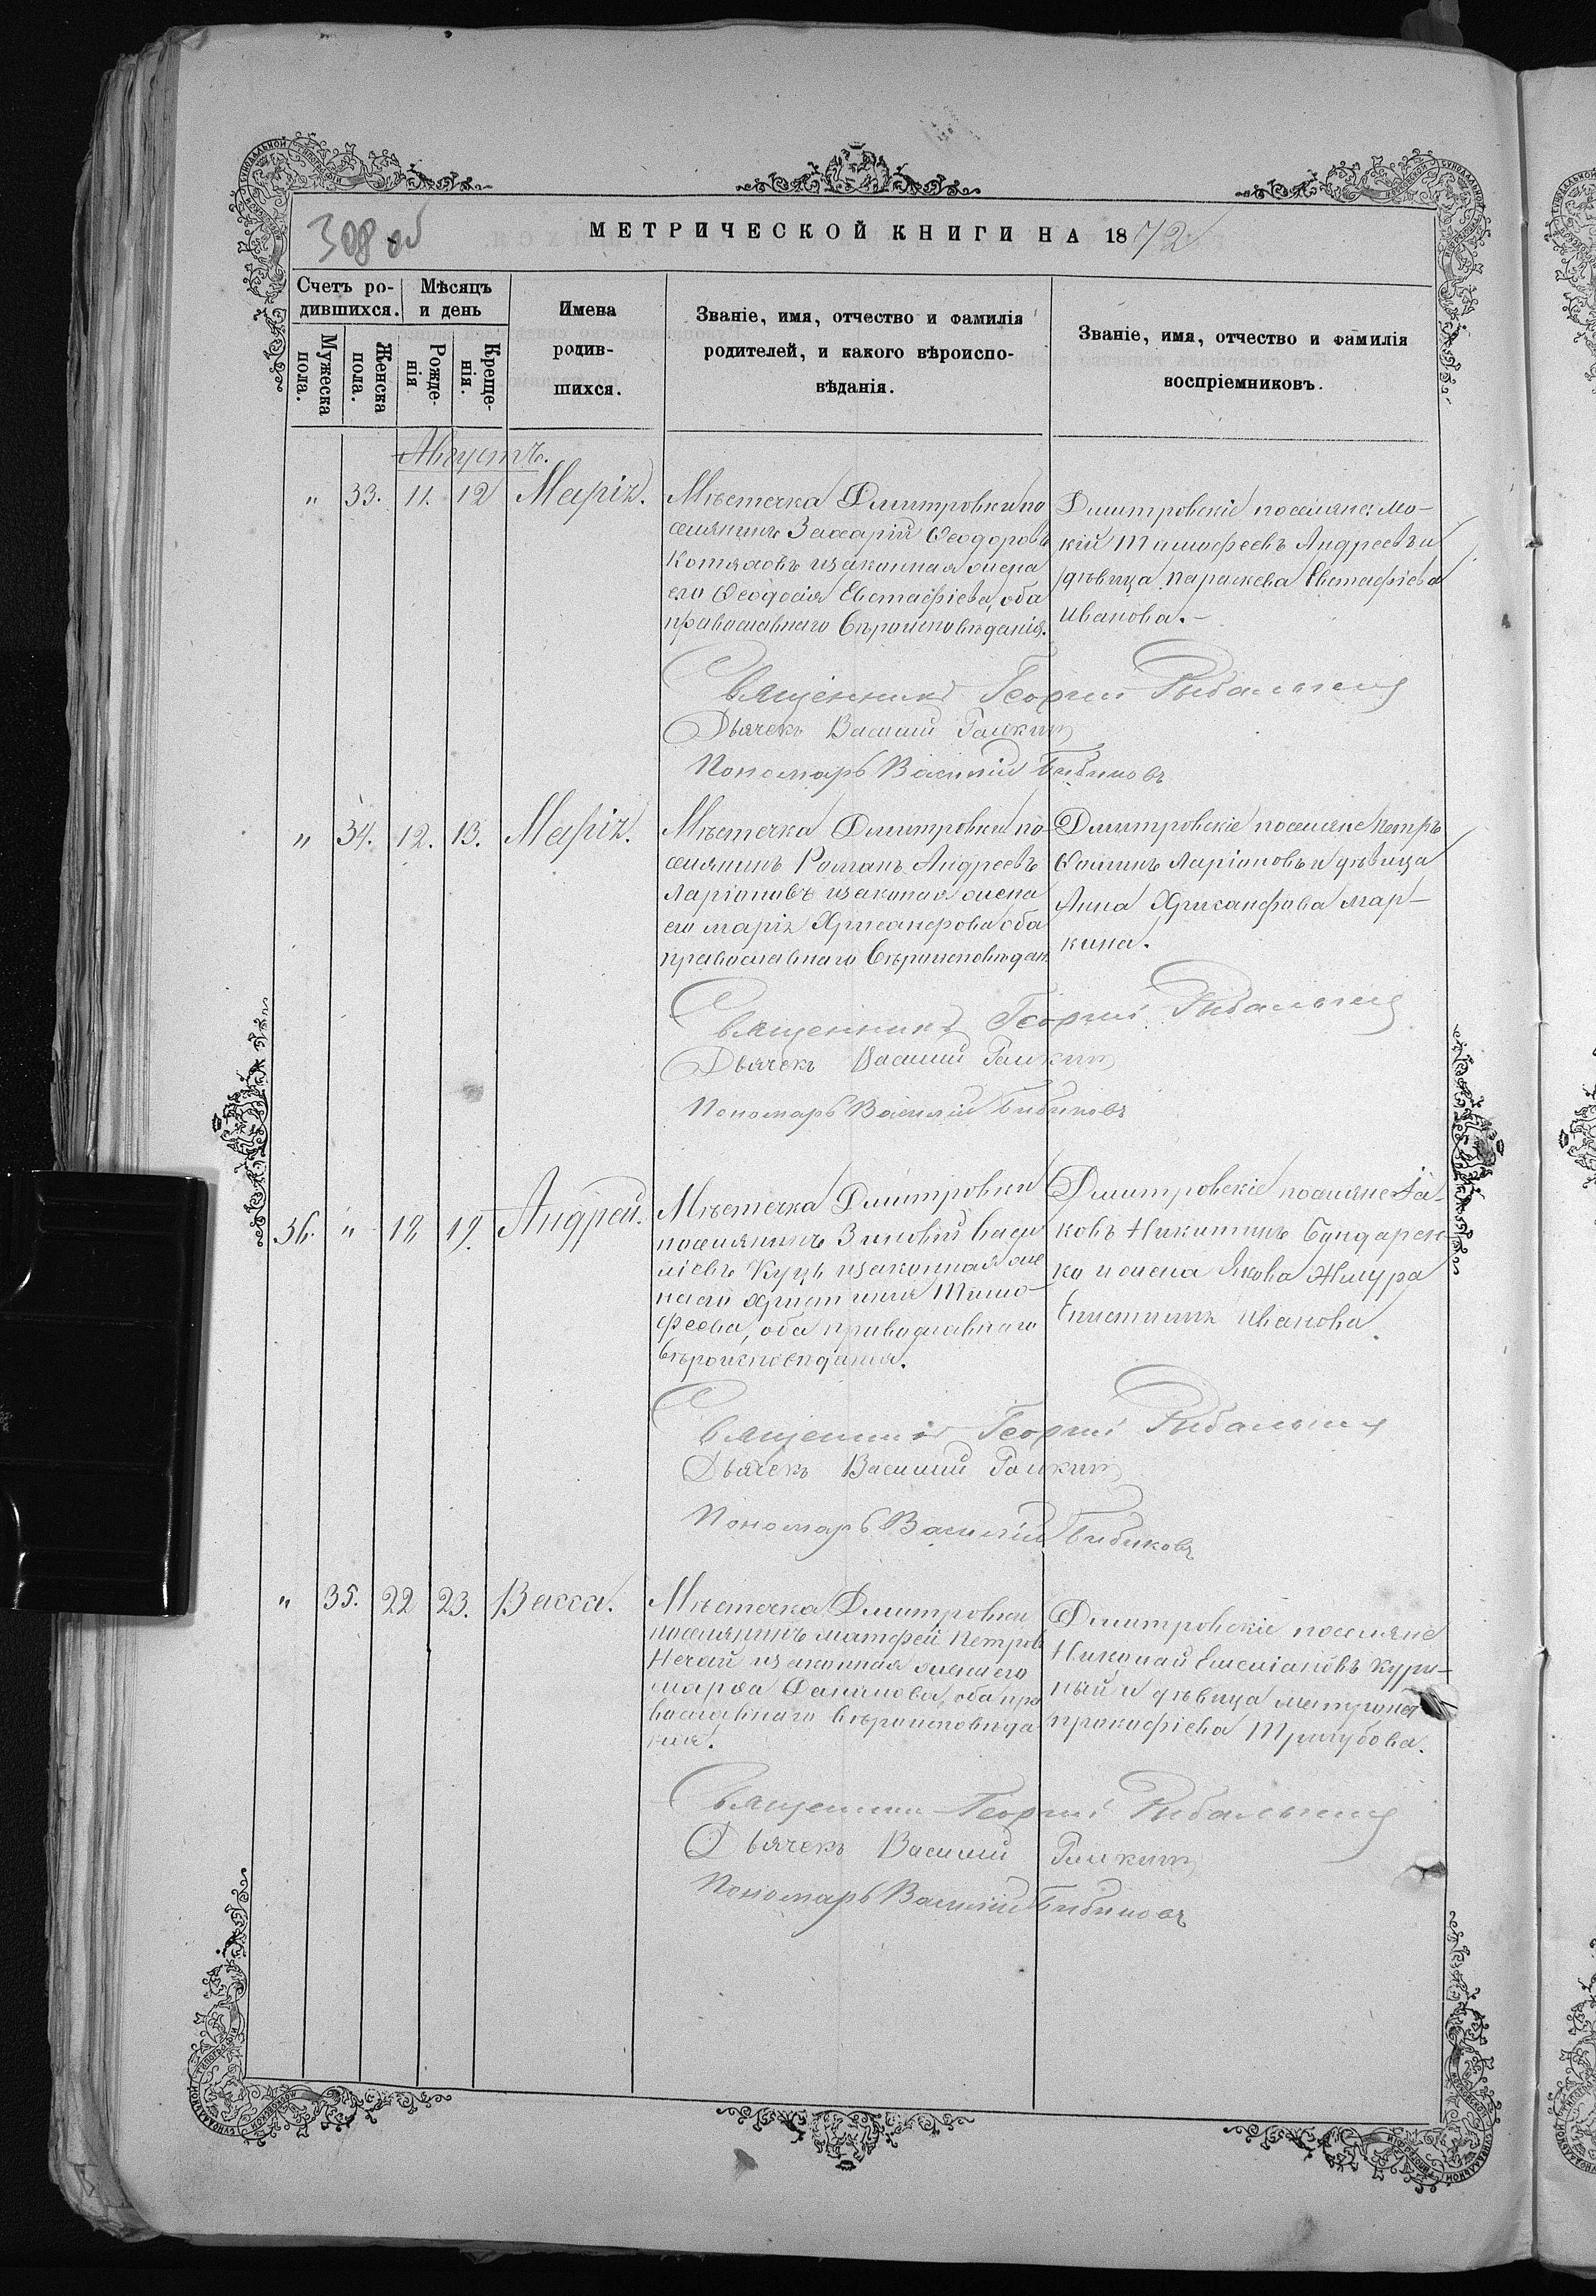 308 об
МЕТРИЧЕСКОЙ КНИГИ НА 1872
Счетъ ро-
дившихся.
Мѣсяцъ
и день
Мужеска
пола.
Женска
пола.
Рожде-
нія
Креще-
нія.
Имена
родив-
шихся.
Званіе, имя, отчество и фамилія
родителей, и какого вѣроиспо-
вѣданія.
Званіе, имя, отчество и фамилія
воспріемниковъ.
Августъ.
" 33. 11. 12 Марія.
Мѣстечка Дмитровки по
селянинъ Захарій Ѳеодоровъ
Котляровъ и законная жена
его Ѳеодосія Евстафіева, оба
православнаго вѣроисповѣданія.
Дмитровскіе поселяне:
Тимофеевъ Андреевъ и
дѣвица Параскева Евстафіева
Иванова.-
Священникъ Георгій
Дьячекъ Василий
Пономарь Василій Бибиковъ
" 34. 12. 13. Марія.
Мѣстечка Дмитровки по-
селянинъ Романъ Андреевъ
Ларіоновъ и законая жена
его Марія Хрисанфова оба
православнаго вѣроисповѣдан.
Дмитровскіе поселяне Петръ
Ѳоминъ Ларіоновъ и дѣвица
Анна Хрисанфова Мар-
кина.
Священникъ Георгій
Дьячекъ Василий
Пономарь Василій Бибиковъ
36. " 18 19. Андрей.
Мѣстечка Дмитровки
поселянинъ Зиновій Васи
ліевъ Куць и законная же
на его Християния Тимо-
феева, оба православнаго
вѣроисповѣданія.
Дмитровскіе поселяне Іа-
ковъ Никитинъ Бундарен-
ко и жена Якова Жмура
Иванова.
Священникъ Георгій
Дьячекъ Василий
Пономарь Василій Бибиковъ
" 35. 22 23. Васса.
Мѣстечка Дмитровки
поселянинъ Матфей Петровъ
Нечай и законная жена его
Марѳа Данилова, оба пра
вославнаго вѣроисповѣда
нія.
Дмитровскіе поселяне
Николай Емеліановъ Кури-
ный и дѣвица Матрона
Прокофіева Тригубова.
Священникъ Георгій
Дьячекъ Василий
Пономарь Василій Бибиковъ